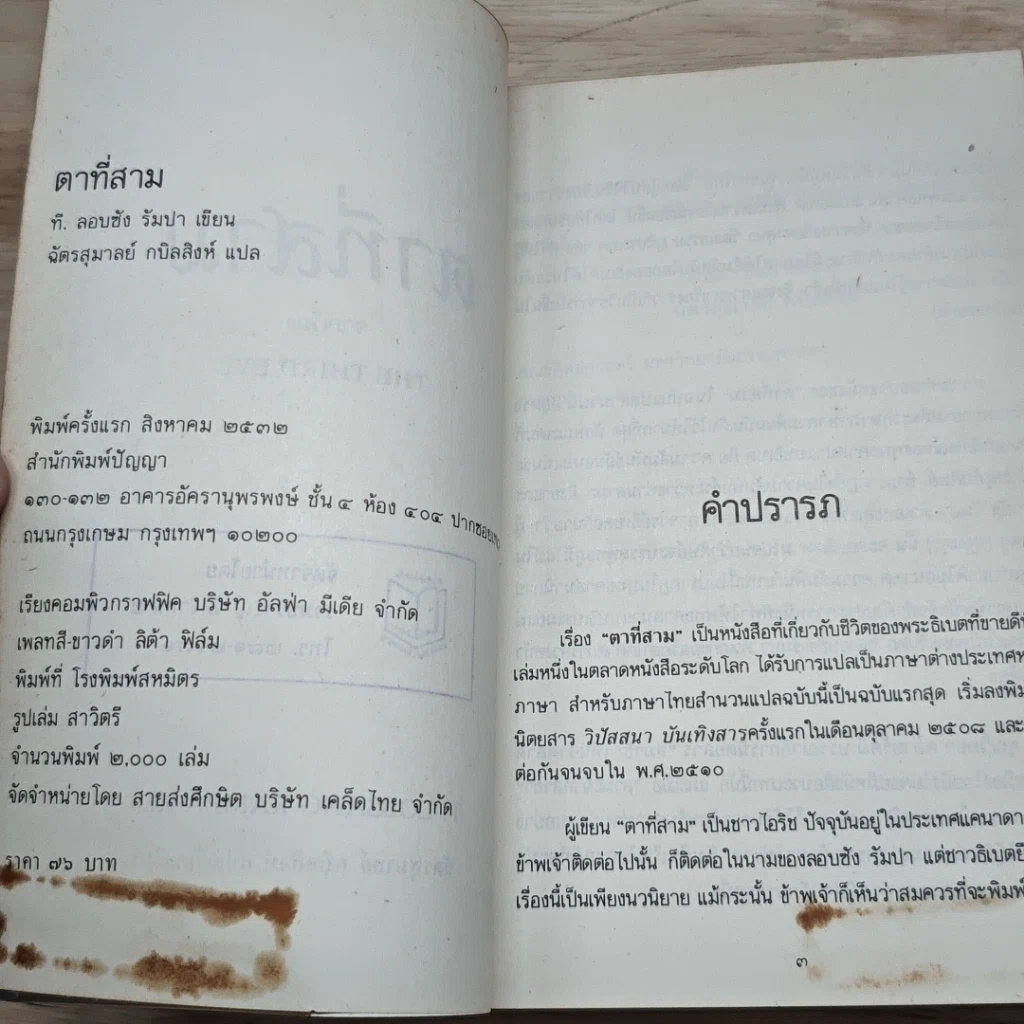 ตาที่สาม
ที. ลอบซัง รัมปา เขียน
ฉัตรสุมาลย์ กบิลสิงห์ แปล
พิมพ์ครั้งแรก สิงหาคม ๒๕๓๒
สำนักพิมพ์ปัญญา
๑๓๐-๑๓๒ อาคารอัครานุพรพงษ์ ชั้น ๔ ห้อง ๔๐๔
ถนนกรุงเกษม กรุงเทพฯ ๑๐๒๐๐
เรียงคอมพิวกราฟฟิค บริษัท อัลฟ่า มีเดีย จำกัด
เพลทสี-ขาวดำ ลิต้า ฟิล์ม
พิมพ์ที่ โรงพิมพ์สหมิตร
รูปเล่ม สาวิตรี
จำนวนพิมพ์ ๒,๐๐๐ เล่ม
จัดจำหน่ายโดย สายส่งศึกษิต บริษัท เคล็ดไทย จำกัด
ราคา ๗๖ บาท
คำปรารภ
เรื่อง “ตาที่สาม” เป็นหนังสือที่เกี่ยวกับชีวิตของพระธิเบตที่ขายดี
เล่มหนึ่งในตลาดหนังสือระดับโลก ได้รับการแปลเป็นภาษาต่างประเทศ
ภาษา สำหรับภาษาไทยสำนวนแปลฉบับนี้เป็นฉบับแรกสุด เริ่มลงพิม
นิตยสาร วิปัสสนา บันเทิงสารครั้งแรกในเดือนตุลาคม ๒๕๐๘ และ
ต่อกันจนจบใน พ.ศ.๒๕๑๐
ผู้เขียน “ตาที่สาม” เป็นชาวไอริช ปัจจุบันอยู่ในประเทศแคนาดา
ข้าพเจ้าติดต่อไปนั้น ก็ติดต่อในนามของลอบซัง รัมปา แต่ชาวธิเบต
เรื่องนี้เป็นเพียงนวนิยาย แม้กระนั้น ข้าพเจ้าก็เห็นว่าสมควรที่จะพิมพ์
๓